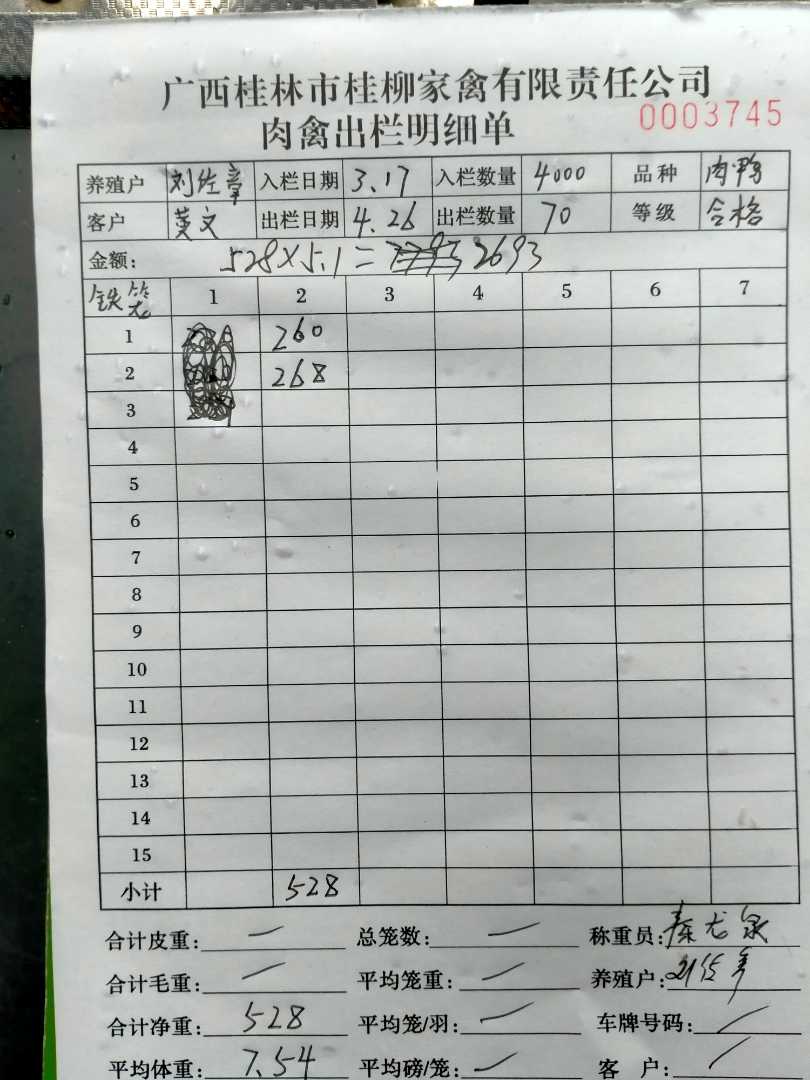 广西桂林市桂柳家禽有限责任公司
肉禽出栏明细单 0003745
养殖户 刘佐章 入栏日期 3.17 入栏数量 4000 品种 肉鸭
客户 英文 出栏日期 4.26 出栏数量 70 等级 合格
金额: 528×5.1= 2693
铁笼 1 2 3 4 5 6 7
1 260
2 268
3
4
5
6
7
8
9
10
11
12
13
14
15
小计 528
合计皮重: 一 总笼数: 一 称重员: 秦龙泉
合计毛重: 一 平均笼重: 一 养殖户: 刘佐章
合计净重: 528 平均笼/羽: 一 车牌号码: /
平均体重: 7.54 平均磅/笼: 一 客户: /